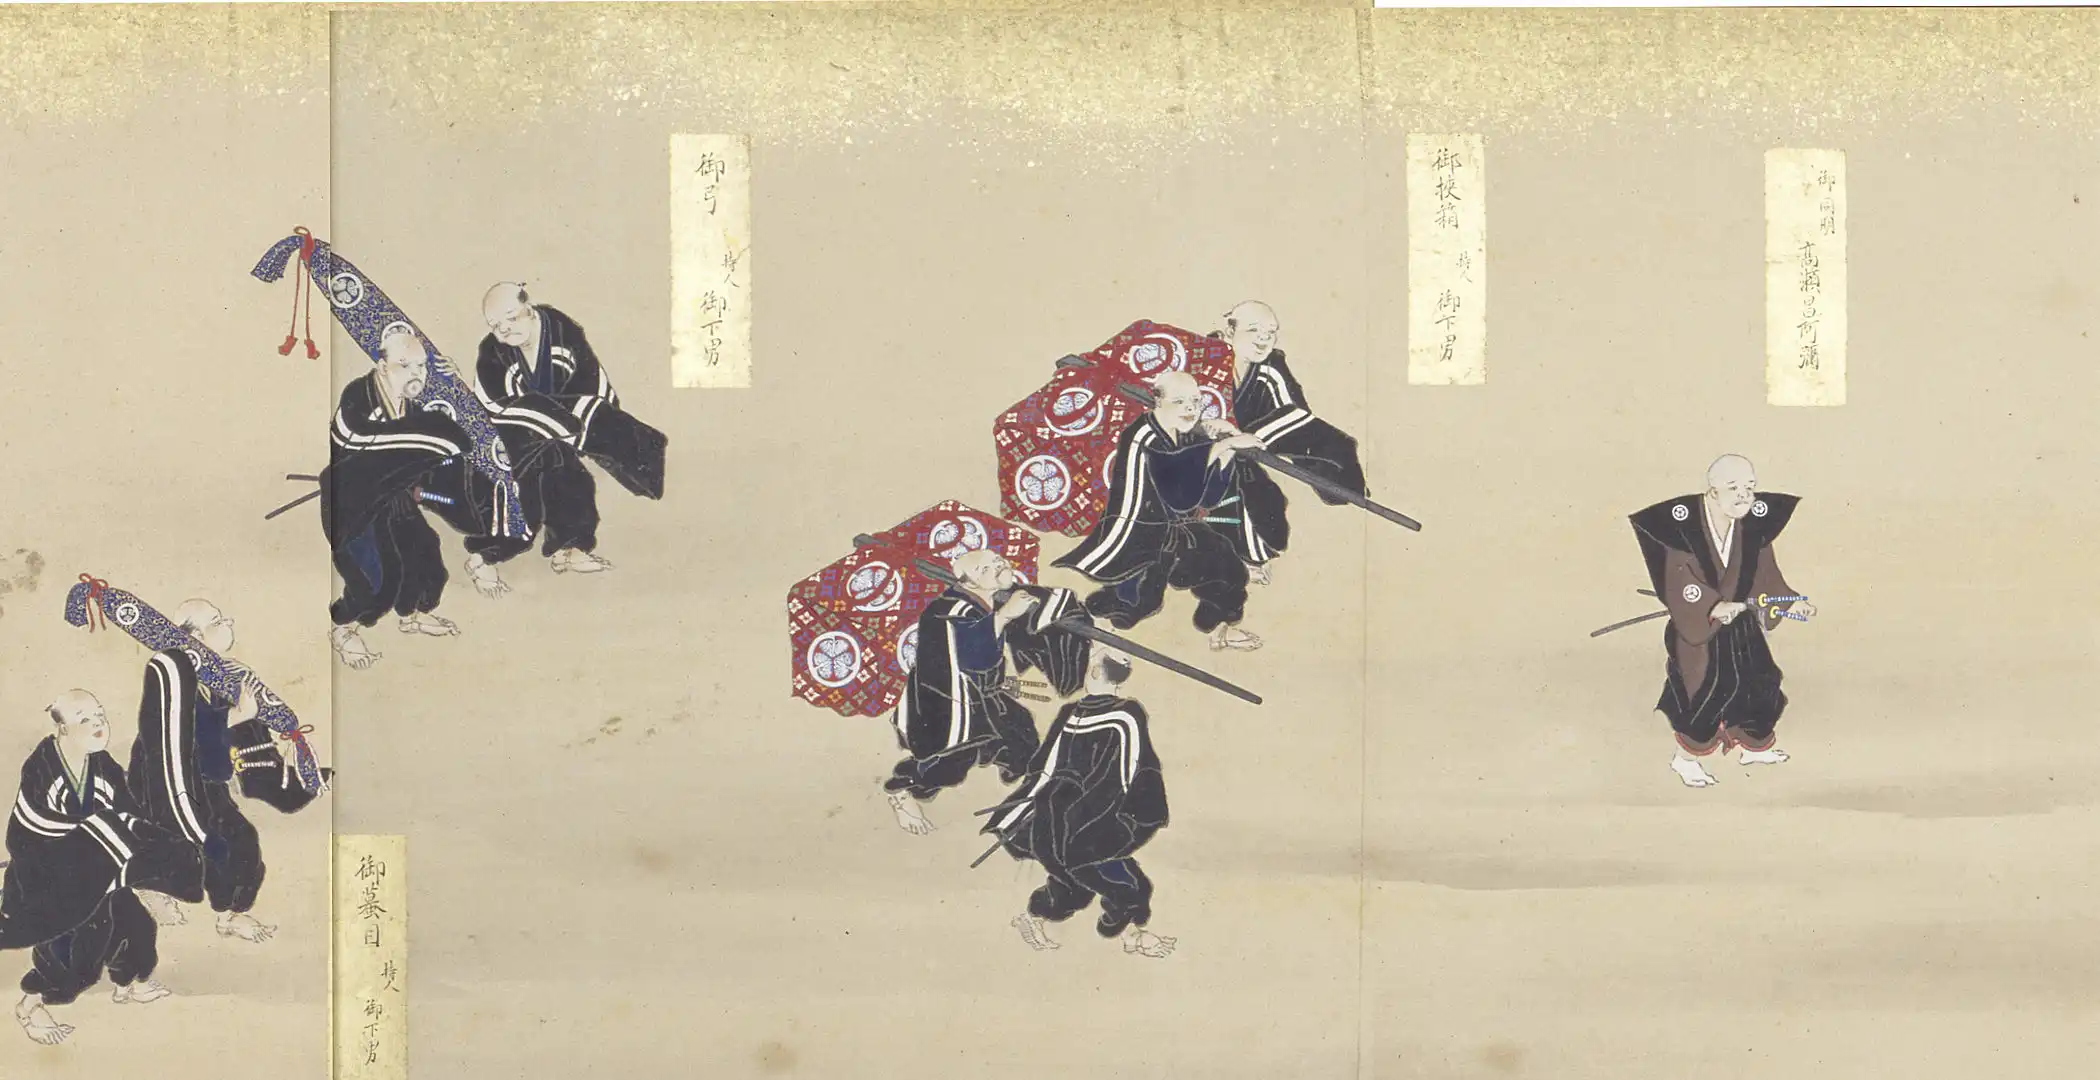 御同明
高瀬昌阿彌
御挾箱 持人 御下男
御弓 持人 御下男
御蟇目 持人 御下男